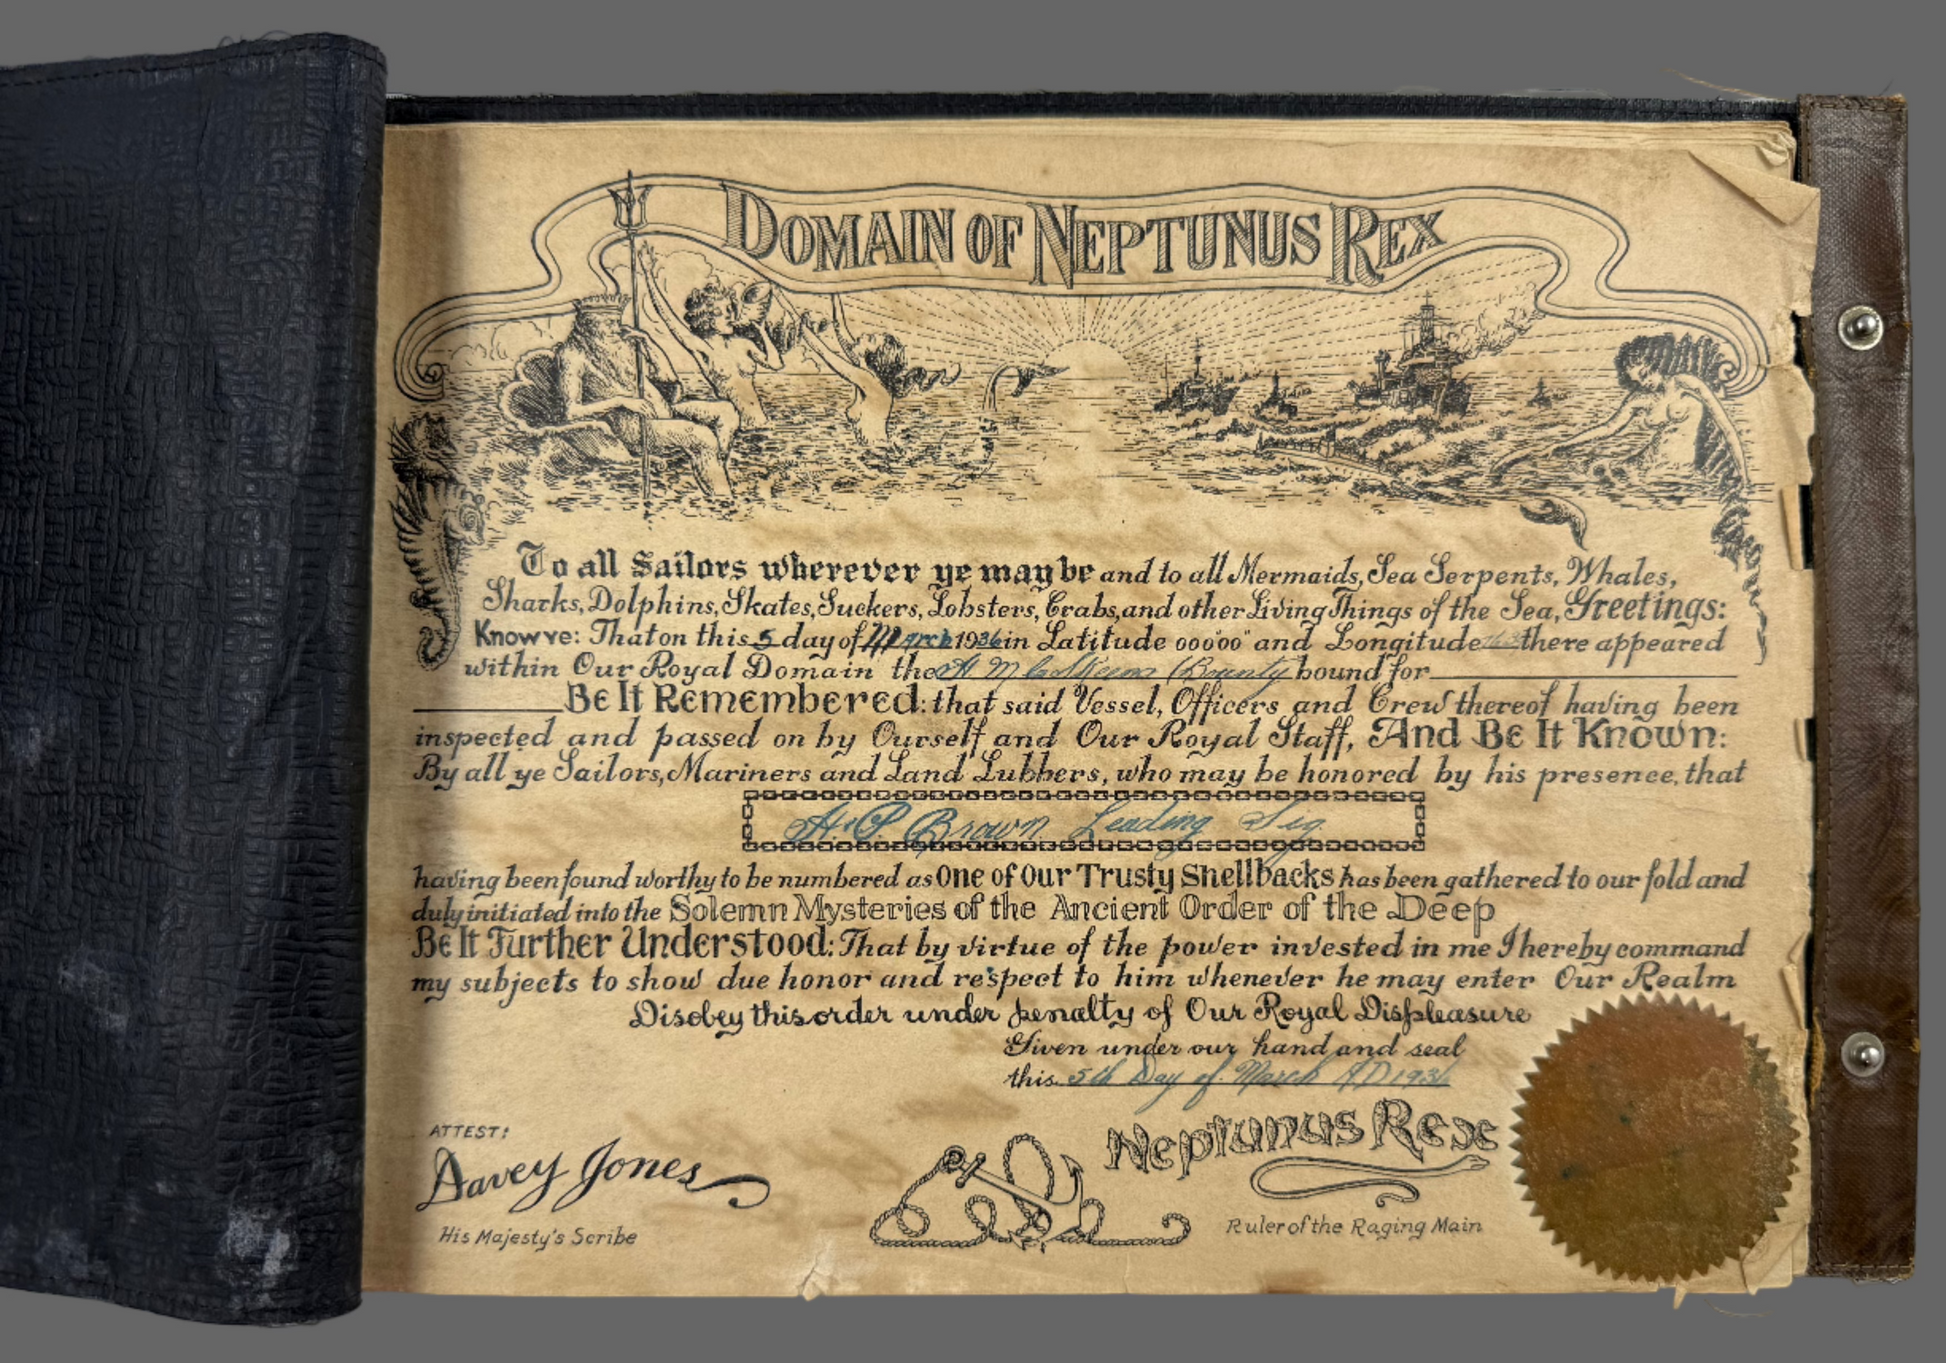 DOMAIN OF NEPTUNUS REX
To all Sailors wherever ye may be and to all Mermaids, Sea Serpents, Whales,
Sharks, Dolphins, Skates, Suckers, Lobsters, Crabs, and other Living Things of the Sea, Greetings:
Know ye: That on this 5 day of March 1936 in Latitude 00000" and Longitude there appeared
within Our Royal Domain the bound for
Be It Remembered: that said Vessel, Officers and Crew thereof having been
inspected and passed on by Ourself and Our Royal Staff, And Be It Known:
By all ye Sailors, Mariners and Land Lubbers, who may be honored by his presence, that
H.P. Brown Leading Sig.
having been found worthy to be numbered as One of Our Trusty Shellbacks has been gathered to our fold and
duly initiated into the Solemn Mysteries of the Ancient Order of the Deep
Be It Further Understood: That by virtue of the power invested in me I hereby command
my subjects to show due honor and respect to him whenever he may enter Our Realm
Disobey this order under penalty of Our Royal Displeasure
Given under our hand and seal
this 5th Day of March AD 1936
ATTEST:
Davey Jones
His Majesty's Scribe
Neptunus Rex
Ruler of the Raging Main